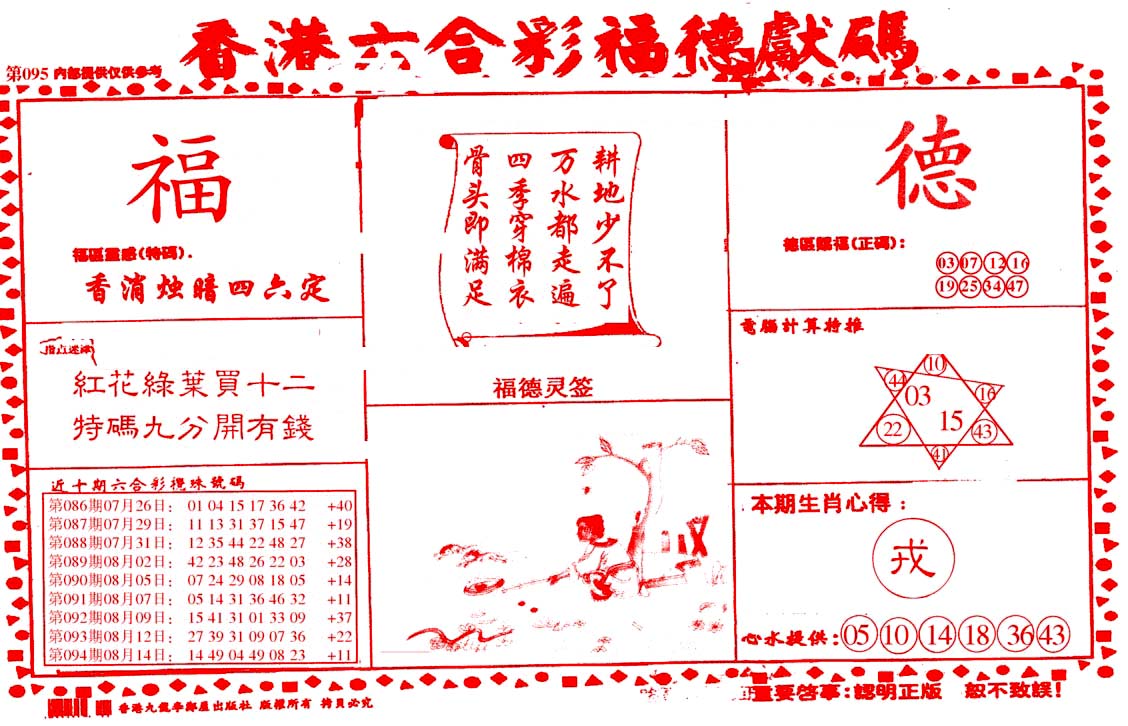 香港六合彩福德獻碼
第095 内部提供仅供参考
福
福區靈感(特碼).
香消烛暗四六定
紅花綠葉買十二
特碼九分開有錢
近十期六合彩攪珠號碼
第086期07月26日: 01 04 15 17 36 42 +40
第087期07月29日: 11 13 31 37 15 47 +19
第088期07月31日: 12 35 44 22 48 27 +38
第089期08月02日: 42 23 48 26 22 03 +28
第090期08月05日: 07 24 29 08 18 05 +14
第091期08月07日: 05 14 31 36 46 32 +11
第092期08月09日: 15 41 31 01 33 09 +37
第093期08月12日: 27 39 31 09 07 36 +22
第094期08月14日: 14 49 04 49 08 23 +11
耕地少不了
万水都走遍
四季穿棉衣
骨头即满足
福德灵签
德
德區賜福(正碼):
03 07 12 16
19 25 34 47
電腦計算特推
10
44 03 16
22 15 43
41
本期生肖心得:
戎
心水提供: 05 10 14 18 36 43
香港九龍
出版社 版權所有 拷貝必究
重要啓事:認明正版 恕不致誤!